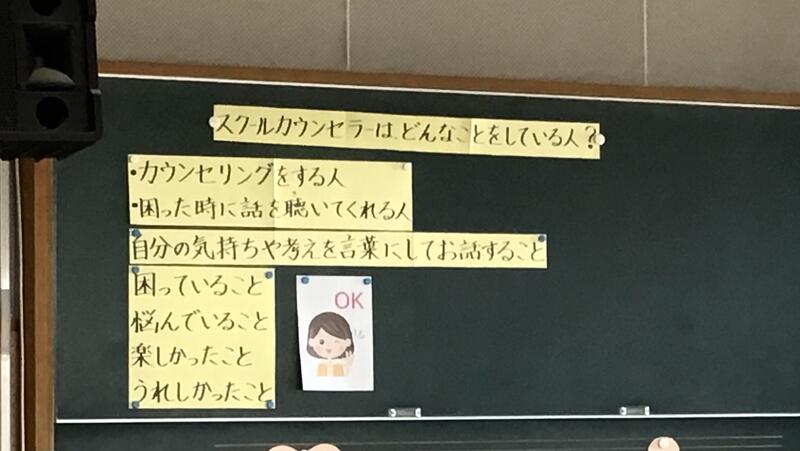 スクールカウンセラーは、どんなことをしている人?
・カウンセリングをする人
・困った時に話を聴いてくれる人
自分の気持ちや考えを言葉にしてお話すること
困っていること
悩んでいること
楽しかったこと
うれしかったこと
OK